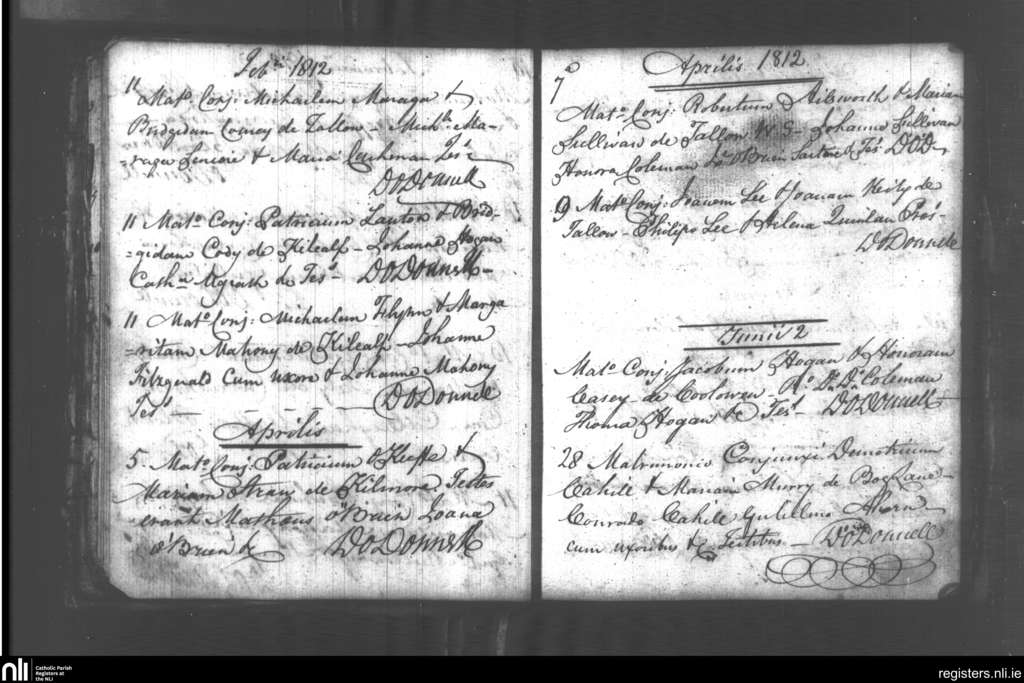 Feb. 1812
11 Mato. Conj: Michaelem Maraga &
Bridgidam Conroy de Tallow - Michle. Ma-
=raga Seniore & Maria Test
DODonnell
11 Mato. Conj: Patricium Lawton & Brid-
=gidam Cody de Kilcalf - Johanne Hogan
Catha. Mgrath & Tes. DODonnell
11 Mato. Conj: Michaelem Flynn & Marga
=ritam Mahony de Kilcalf - Johanne
Fitzgerald Cum uxore & Johanne Mahony
Tes. DODonnell
Aprilis
5 Mato. Conj: Patricium OKeeffe &
Mariam de Kilmore Testes
erant Matheus OBrien Joana
OBrien & DODonnell
Aprilis 1812
7
Mato. Conj: Robertum Ailsworth & Mariam
Sullivan de Tallow W S - Johanne Sullivan
Honora Coleman OBrien & Tes. DOD
9 Mato. Conj: Joanem Lee & Joanam de
Tallow - Philipo Lee & Helena Quinlan Pres.
DODonnell
Junii 2
Mato. Conj: Jacobum Hogan & Honoram
Casey de - Ro. Dr. Dr. Coleman
Thoma Hogan & Test DODonnell
28 Matrimonio Conjunxi Demetrium
Cahill & Mariam Murry de Boglane
Conrado Cahill Gulielmo Ahern
cum uxoribus & Testibus - DODonnell
nli
Catholic Parish
Registers at
the NLI
registers.nli.ie